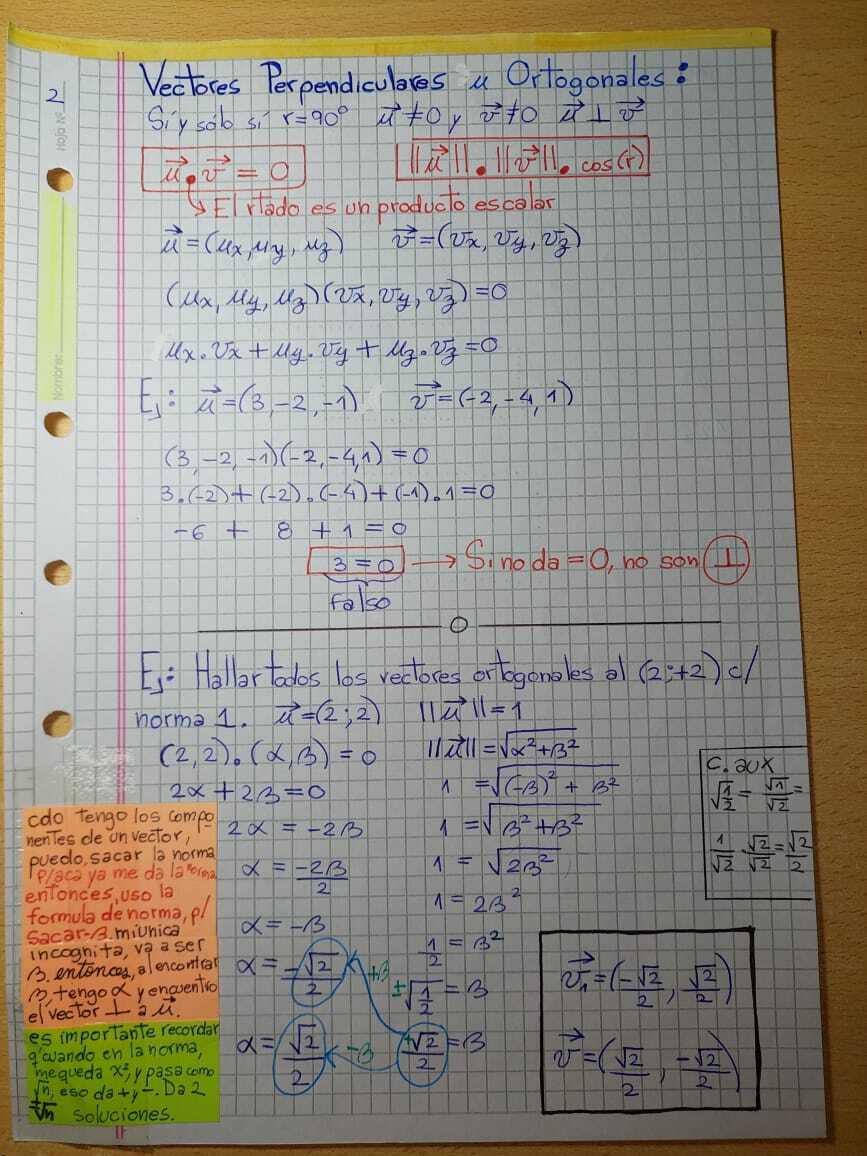 2
Hoja Nº
Nombre:
Vectores Perpendiculares u Ortogonales:
Sí y sólo sí r=90° u⃗ ≠0 y v⃗ ≠0 u⃗ ⊥ v⃗
u⃗ . v⃗ = 0
||u⃗||.||v⃗||. cos(r)
↳ El rtado es un producto escalar
u⃗ =(ux,uy,uz) v⃗=(vx,vy,vz)
(ux,uy,uz)(vx,vy,vz)=0
ux.vx+uy.vy+uz.vz=0
Ej: u⃗=(3,-2,-1) v⃗=(-2,-4,1)
(3,-2,-1)(-2,-4,1)=0
3.(-2)+(-2).(-4)+(-1).1=0
-6 + 8 + 1 = 0
3=0 → Si no da =0, no son ⊥
falso
Ej: Hallar todos los vectores ortogonales al (2;+2) c/
norma 1. u⃗=(2;2)
(2,2).(α,β)=0
2α+2β=0
2α = -2β
α = -2β/2
α = -β
α = -√2/2
α = √2/2
||u⃗||=1
||u⃗||=√α²+β²
1 =√(-β)²+β²
1 =√β²+β²
1 = √2β²
1=2β²
1/2 = β²
±√1/2 = β
±√2/2 = β
+β
-β
C. aux
√1/2 = √1/√2 =
1/√2 . √2/√2 = √2/2
v⃗₁=(-√2/2, √2/2)
v⃗=(√2/2, -√2/2)
cdo tengo los compo-
nentes de un vector,
puedo, sacar la norma
p/aca ya me da la norma
entonces, uso la
formula de norma, p/
sacar β. mi única
incognita, va a ser
β, entonces, al encontrar
β, tengo α y encuentro
el vector ⊥ a u⃗.
es importante recordar
q'cuando en la norma,
me queda x², y pasa como
√n, eso da + y -. Da 2
soluciones.